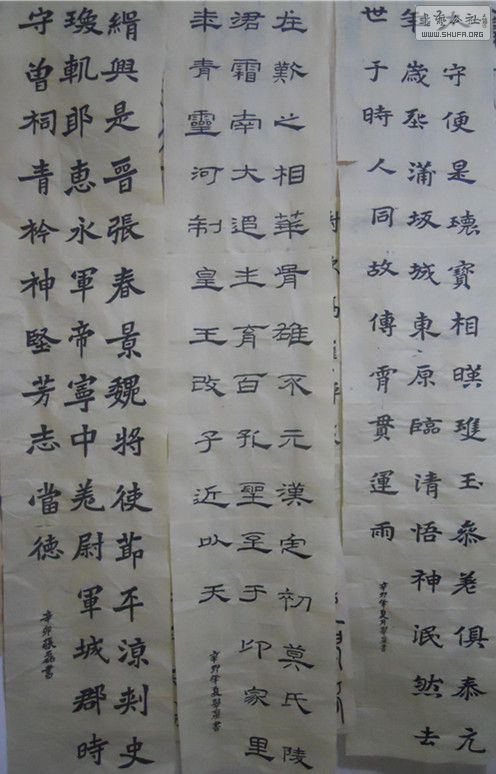 守便是瓌寶相暎瑾玉叅差俱泰亢
歲丕蒲坂城東原臨清悟神泯然去
世于時人同故傳霄貫運雨
辛卯年夏書
在歎之相華骨雄不元漢定初莫氏陵
珺霜南大追生育百孔聖至于印家里
耒青靈河制皇王改子近以天
辛卯年夏學書
緝興是晉張春景魏將使節平涼刺史
瓊軌郎惠永軍帝寧中羌尉軍城郡時
守曽祠青衿神堅芳志當德
辛卯張磊書
公社
www.SHUFA.ORG